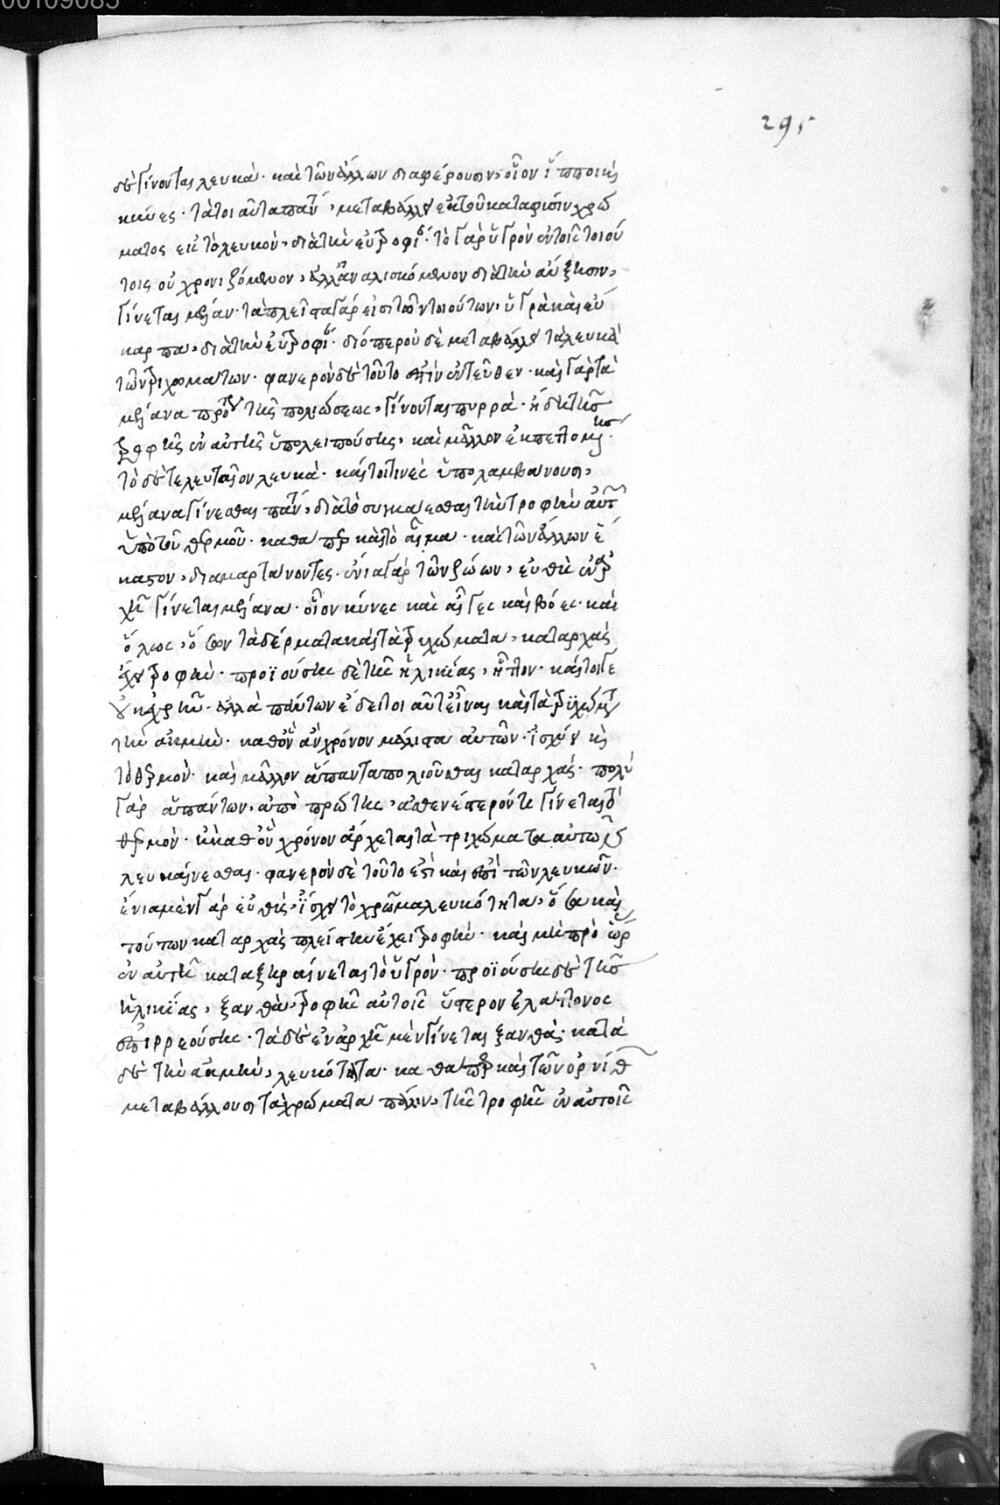 295
δὲ γίνονται λευκὰ· καὶ τῶν ἄλλων διαφέρουσιν, οἷον ἵπποι κὴ
κύνες· τά τοι αὐτὰ παντ μεταβάλλει ἐκ τοῦ κατα φύσιν χρώ
ματος εἰς τὸ λευκὸν, διὰ τὴν εὐτροφί· τὸ γὰρ ὑγρὸν ἐν τοῖς τοιού
τοις οὐ χρονιζόμενον, ἀλλ' ἀναλισκόμενον διὰ τὴν αὔξησιν,
γίνεται μέλαν· τὰ πλεῖστα γάρ εἰσι τῶν τοιούτων, ὑγρὰ καὶ εὐ
καρπα, διὰ τὴν εὐτροφί· διόπερ οὐδὲ μεταβάλλει τὰ λευκὰ
τῶν τριχωμάτων· φανερὸν δὲ τοῦτο ἐστὶν ἐντεῦθεν· καὶ γὰρ τὰ
μέλανα πρὸ τῆς πολιώσεως, γίνονται πυρρά· ἤδη τῆς
τροφῆς ἐν αὐτῆς ὑπολειπούσης, καὶ μᾶλλον ἐκπεττομης·
τὸ δὲ τελευταῖον λευκά· καίτοι τινὲς ὑπολαμβάνουσι,
μέλανα γίνεσθαι παντ, διὰ τὸ συγκαίεσθαι τὴν τροφὴν αὐτ
ὑπὸ τοῦ θερμοῦ· καθαπερ καὶ τὸ αἷμα· καὶ τῶν ἄλλων ἕ
καστον, διαμαρτάνοντες· ἔνια γὰρ τῶν ζώων, εὐθὺς ἐν ἀρ
χῆ γίνεται μέλανα· οἷον κύνες καὶ αἶγες καὶ βόες· καὶ
ὅλως, ὅσων τὰ δέρματα καὶ τὰ τριχώματα, καταρχὰς
ἔχει τροφὴν· προϊούσης δὲ τῆς ἡλικίας, ἧττον· καίτοι γε
οὐκ ἐχρῆν· ἀλλὰ πάντων ἔδει τοι αὐτ εἶναι καὶ τὰ τριχώματ
τὴν ἀκμὴν· καθ' ὃν ἂν χρόνον μάλιστα αὐτῶν· ἰσχύει κὴ
τὸ θερμὸν· καὶ μᾶλλον ἅπαντα πολιοῦσθαι καταρχάς· πολὺ
γὰρ ἁπάντων, ἀπὸ πρώτης, ἀσθενέστερόν τε γίνεται τὸ
θερμὸν· ἢ καθ' ὃν χρόνον ἄρχεται τὰ τριχώματα αὐτῶν
λευκαίνεσθαι· φανερὸν δὲ τοῦτο ἐστὶ καὶ ἐπὶ τῶν λευκῶν·
ἔνια μὲν γὰρ εὐθὺς, ἴσχει τὸ χρῶμα λευκότητα, ὅσα καὶ
τούτων καταρχὰς πλείστην ἔχει τροφὴν· καὶ μὴ πρὸ ὥρ
ἐν αὐτῆ καταξηραίνεται τὸ ὑγρὸν· προϊούσης δὲ τῆς
ἡλικίας, ξανθὰ, τροφῆς αὐτοῖς ὕστερον ἐλάττονος
ἐπιρρεούσης· τὰ δὲ ἐν ἀρχῆ μὲν γίνεται ξανθὰ· κατὰ
δὲ τὴν ἀκμὴν, λευκότητα· καθαπερ καὶ τῶν ὀρνίθ
μεταβάλλουσι τὰ χρώματα πάλιν, τῆς τροφῆς ἐν αὐτοῖς